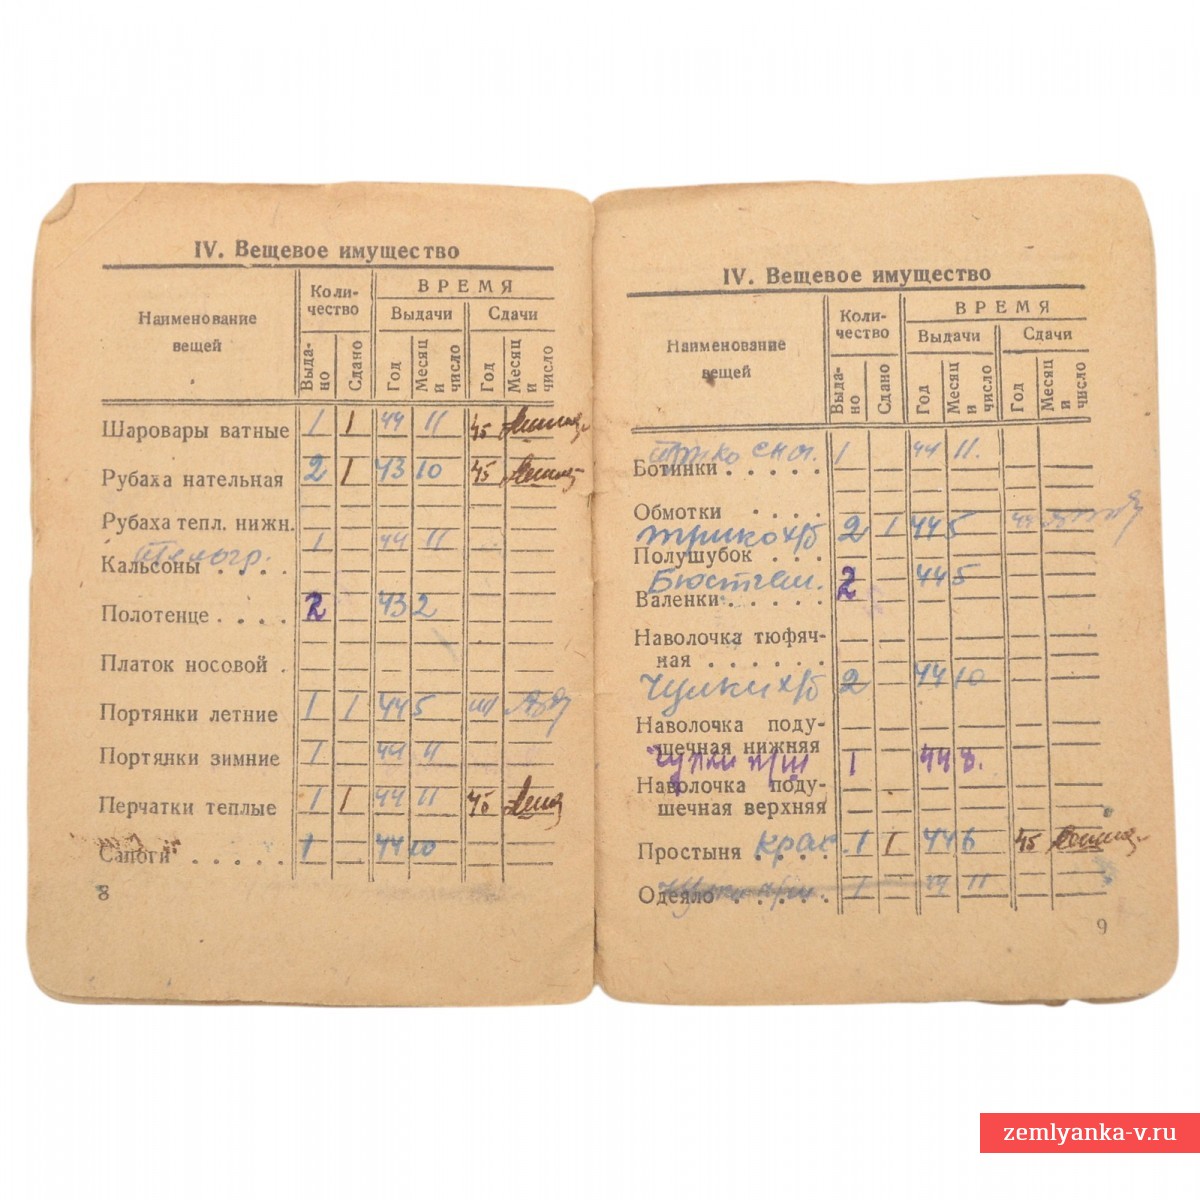 IV. Вещевое имущество
Наименование вещей
Коли-
чество
ВРЕМЯ
Выдачи
Сдачи
Выда-
но
Сдано
Год
Месяц
и
число
Год
Месяц
и
число
Шаровары ватные 1 1 44 11 45
Рубаха нательная 2 1 43 10 45
Рубаха тепл. нижн.
1 44 11
Кальсоны . . . .
Полотенце . . . . 2 43 2
Платок носовой .
Портянки летние 1 1 44 5
Портянки зимние 1 44 11
Перчатки теплые 1 1 44 11 45
Сапоги . . . . . 1 44 10
8
IV. Вещевое имущество
Наименование
вещей
Коли-
чество
ВРЕМЯ
Выдачи
Сдачи
Выда-
но
Сдано
Год
Месяц
и
число
Год
Месяц
и
число
1 44 11.
Ботинки . . . . .
Обмотки . . . .
трико х/б 2 1 44 5 44
Полушубок . . .
Бюстгал. 2 44 5
Валенки . . . . .
Наволочка тюфяч-
ная . . . . . .
Чулки х/б 2 44 10
Наволочка поду-
шечная нижняя
чулки п/ш 1 44 8.
Наволочка поду-
шечная верхняя
Простыня . . . . 1 1 44 6 45
Одеяло . . . . . 1 44 11
9
zemlyanka-v.ru